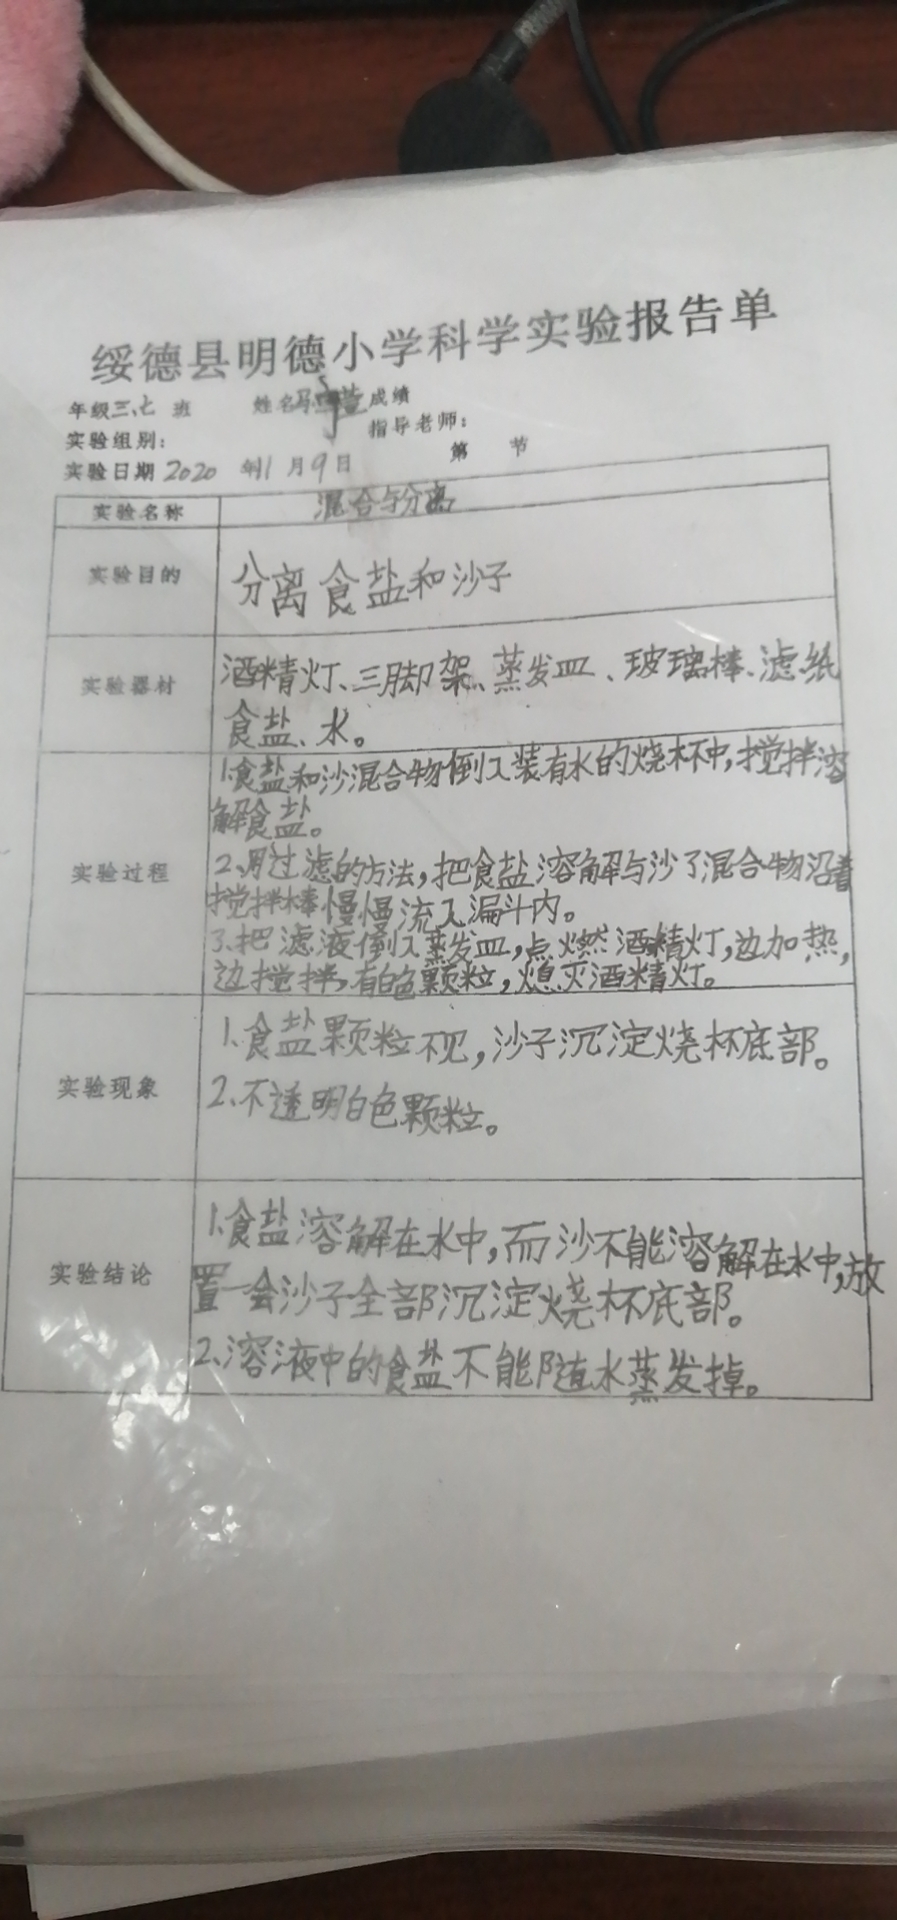 绥德县明德小学科学实验报告单
年级三、七 班 姓名 成绩
实验组别： 指导老师：
实验日期2020 年11月9日 第 节
实验名称 混合与分离
实验目的 分离食盐和沙子
实验器材 酒精灯、三脚架、蒸发皿、玻璃棒、滤纸
食盐、水。
实验过程 1.食盐和沙混合物倒入装有水的烧杯中，搅拌溶
解食盐。
2.用过滤的方法，把食盐溶解与沙了混合物沿着
搅拌棒慢慢流入漏斗内。
3.把滤液倒入蒸发皿，点燃酒精灯，边加热，
边搅拌，有白色颗粒，熄灭酒精灯。
实验现象 1.食盐颗粒不见，沙子沉淀烧杯底部。
2.不透明白色颗粒。
实验结论 1.食盐溶解在水中，而沙不能溶解在水中，放
置一会沙子全部沉淀烧杯底部。
2.溶液中的食盐不能随水蒸发掉。